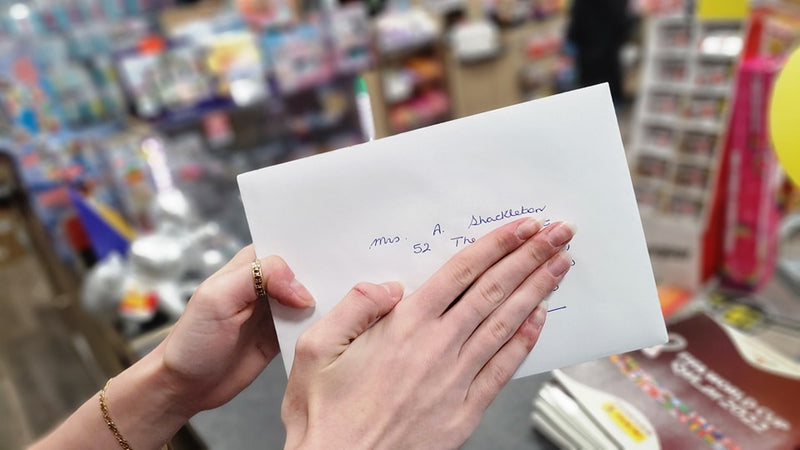 Mrs. A. Shackleton
52 The
FIFA WORLD CUP
QATAR 2022
PANINI